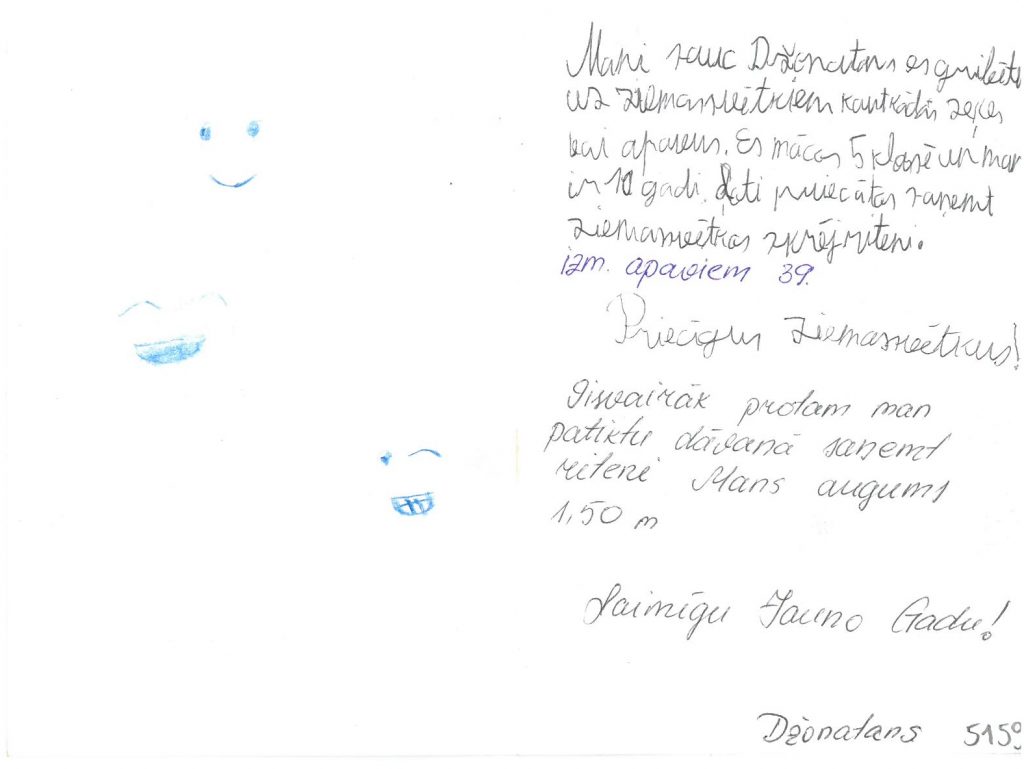 Mani sauc Džonatans es gribētu
uz ziemasvētkiem kautkādas zeķes
vai apavus. Es mācos 5 klasē un man
ir 10 gadi. Ļoti priecātos saņemt
ziemassvētkos skrējriteni.
izm. apaviem 39.
Priecīgus Ziemassvētkus!
Visvairāk protam man
patiktu dāvanā saņemt
riteni Mans augums
1,50 m
Laimīgu Jauno Gadu!
Džonatans 5159